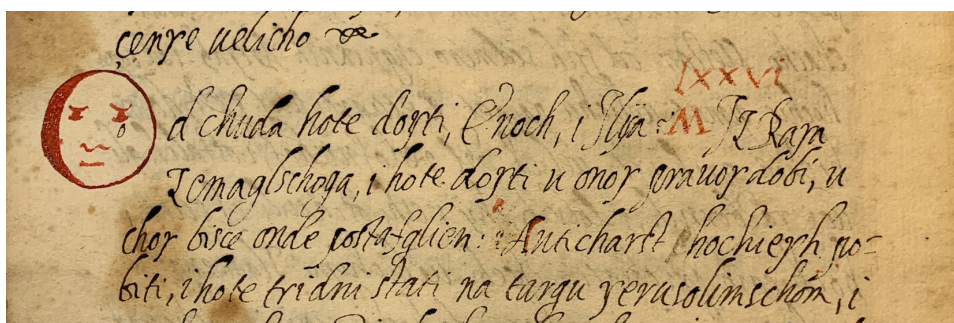 çenye uelicho &c.
lxxvi
Od chuda hote doyti, Enoch, i Ilija: M Iz Raya
Zemaglschoga, i hote doyti u onoy prauoy dobi, u
choy bisce onde postafglien: Anticharst hochieyh po=
biti, i hote tri dni stati na targu yerusolimschom, i